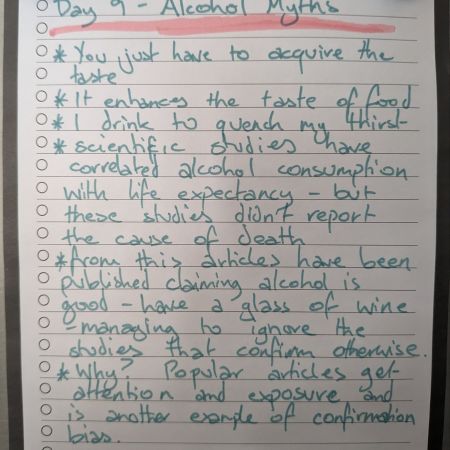 Day 9 - Alcohol Myths
* You just have to acquire the
taste
* It enhances the taste of food
* I drink to quench my thirst
* scientific studies have
correlated alcohol consumption
with life expectancy - but
these studies didn't report
the cause of death
* from this articles have been
published claiming alcohol is
good - have a glass of wine
- managing to ignore the
studies that confirm otherwise.
* Why? Popular articles get
attention and exposure and
is another example of confirmation
bias.